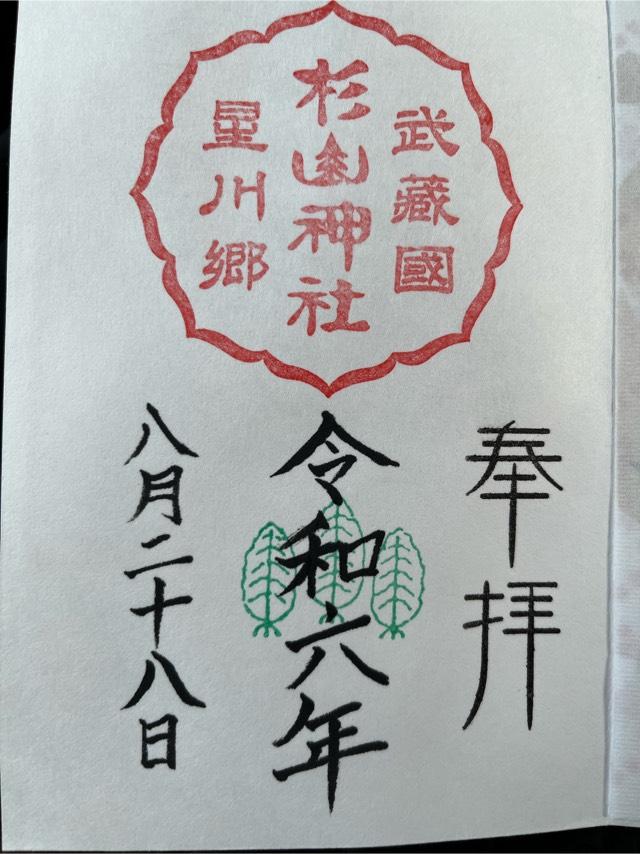 武藏國
杉山神社
星川郷
奉拝
令和六年
八月二十八日